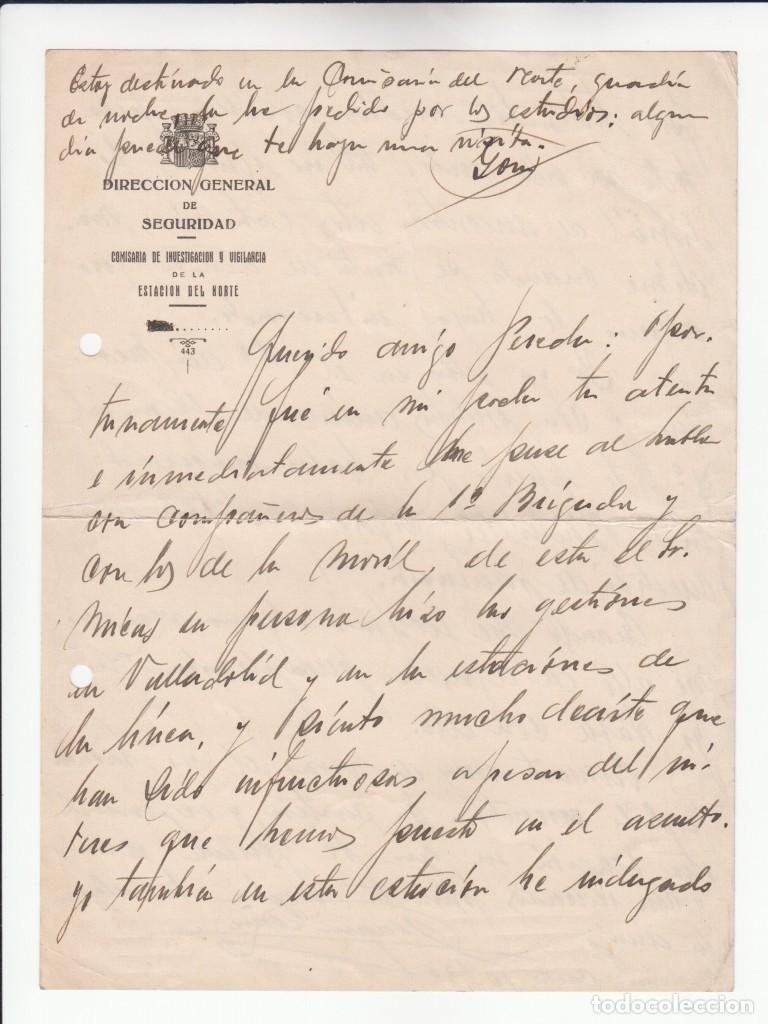 Estoy destinado en la Comisaria del Norte, guardia
de noche, la he pedido por los estudios; algun
dia puede que te haga una visita.
DIRECCION GENERAL
DE
SEGURIDAD
COMISARIA DE INVESTIGACION Y VIGILANCIA
DE LA
ESTACION DEL NORTE
443
Querido amigo Pereda: Opor-
tunamente fué en mi poder tu atenta
e inmediatamente me puse al habla
con compañeros de la 1ª Brigada y
con los de la Movil, de esta el Sr.
en persona hizo las gestiones
en Valladolid y en las estaciones de
la linea, y siento mucho decirte que
han sido infructuosas apesar del in-
teres que hemos puesto en el asunto.
yo también en esta estación he indagado
todocoleccion